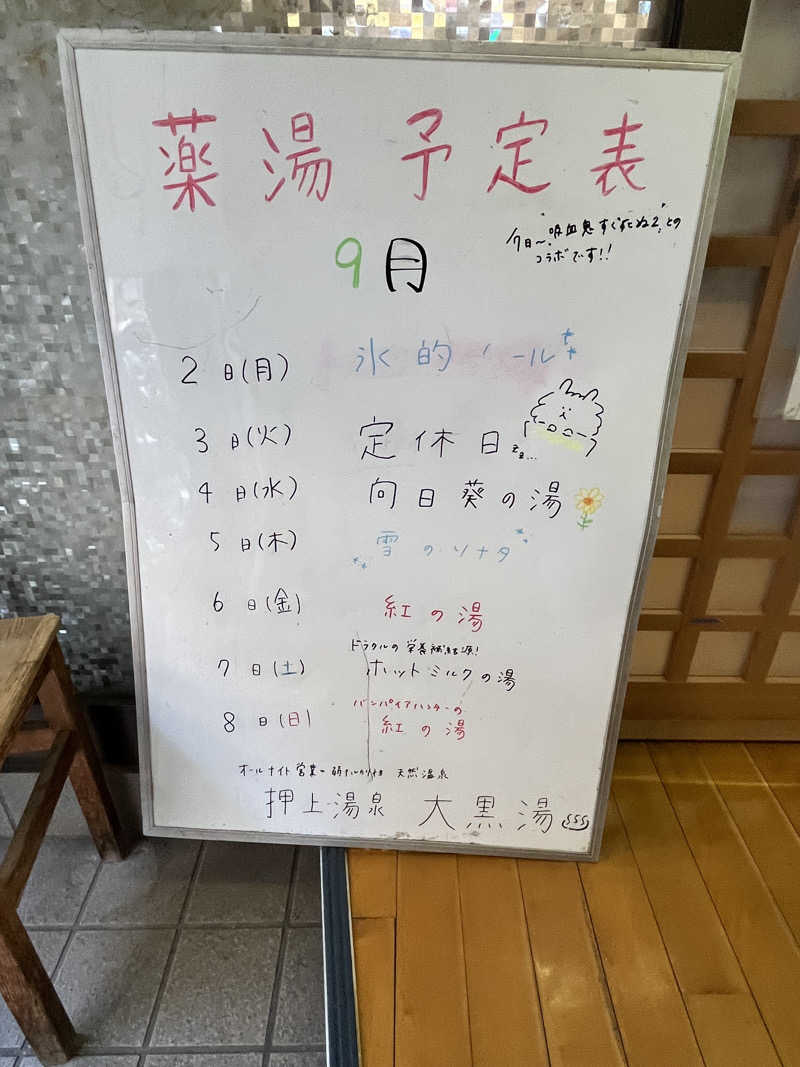 薬湯 予定表
7日〜"吸血鬼すぐ死ぬ2"との
コラボです!!
9月
2日(月) 氷的 ール
3日(火) 定休日 zz...
4日(水) 向日葵の湯
5日(木) 雪のソナタ
6日(金) 紅の湯
ドラクルの栄養補給源!
7日(土) ホットミルクの湯
バンパイアハンターの
8日(日) 紅の湯
オールナイト営業 弱アルカリ性 天然温泉
押上温泉 大黒湯